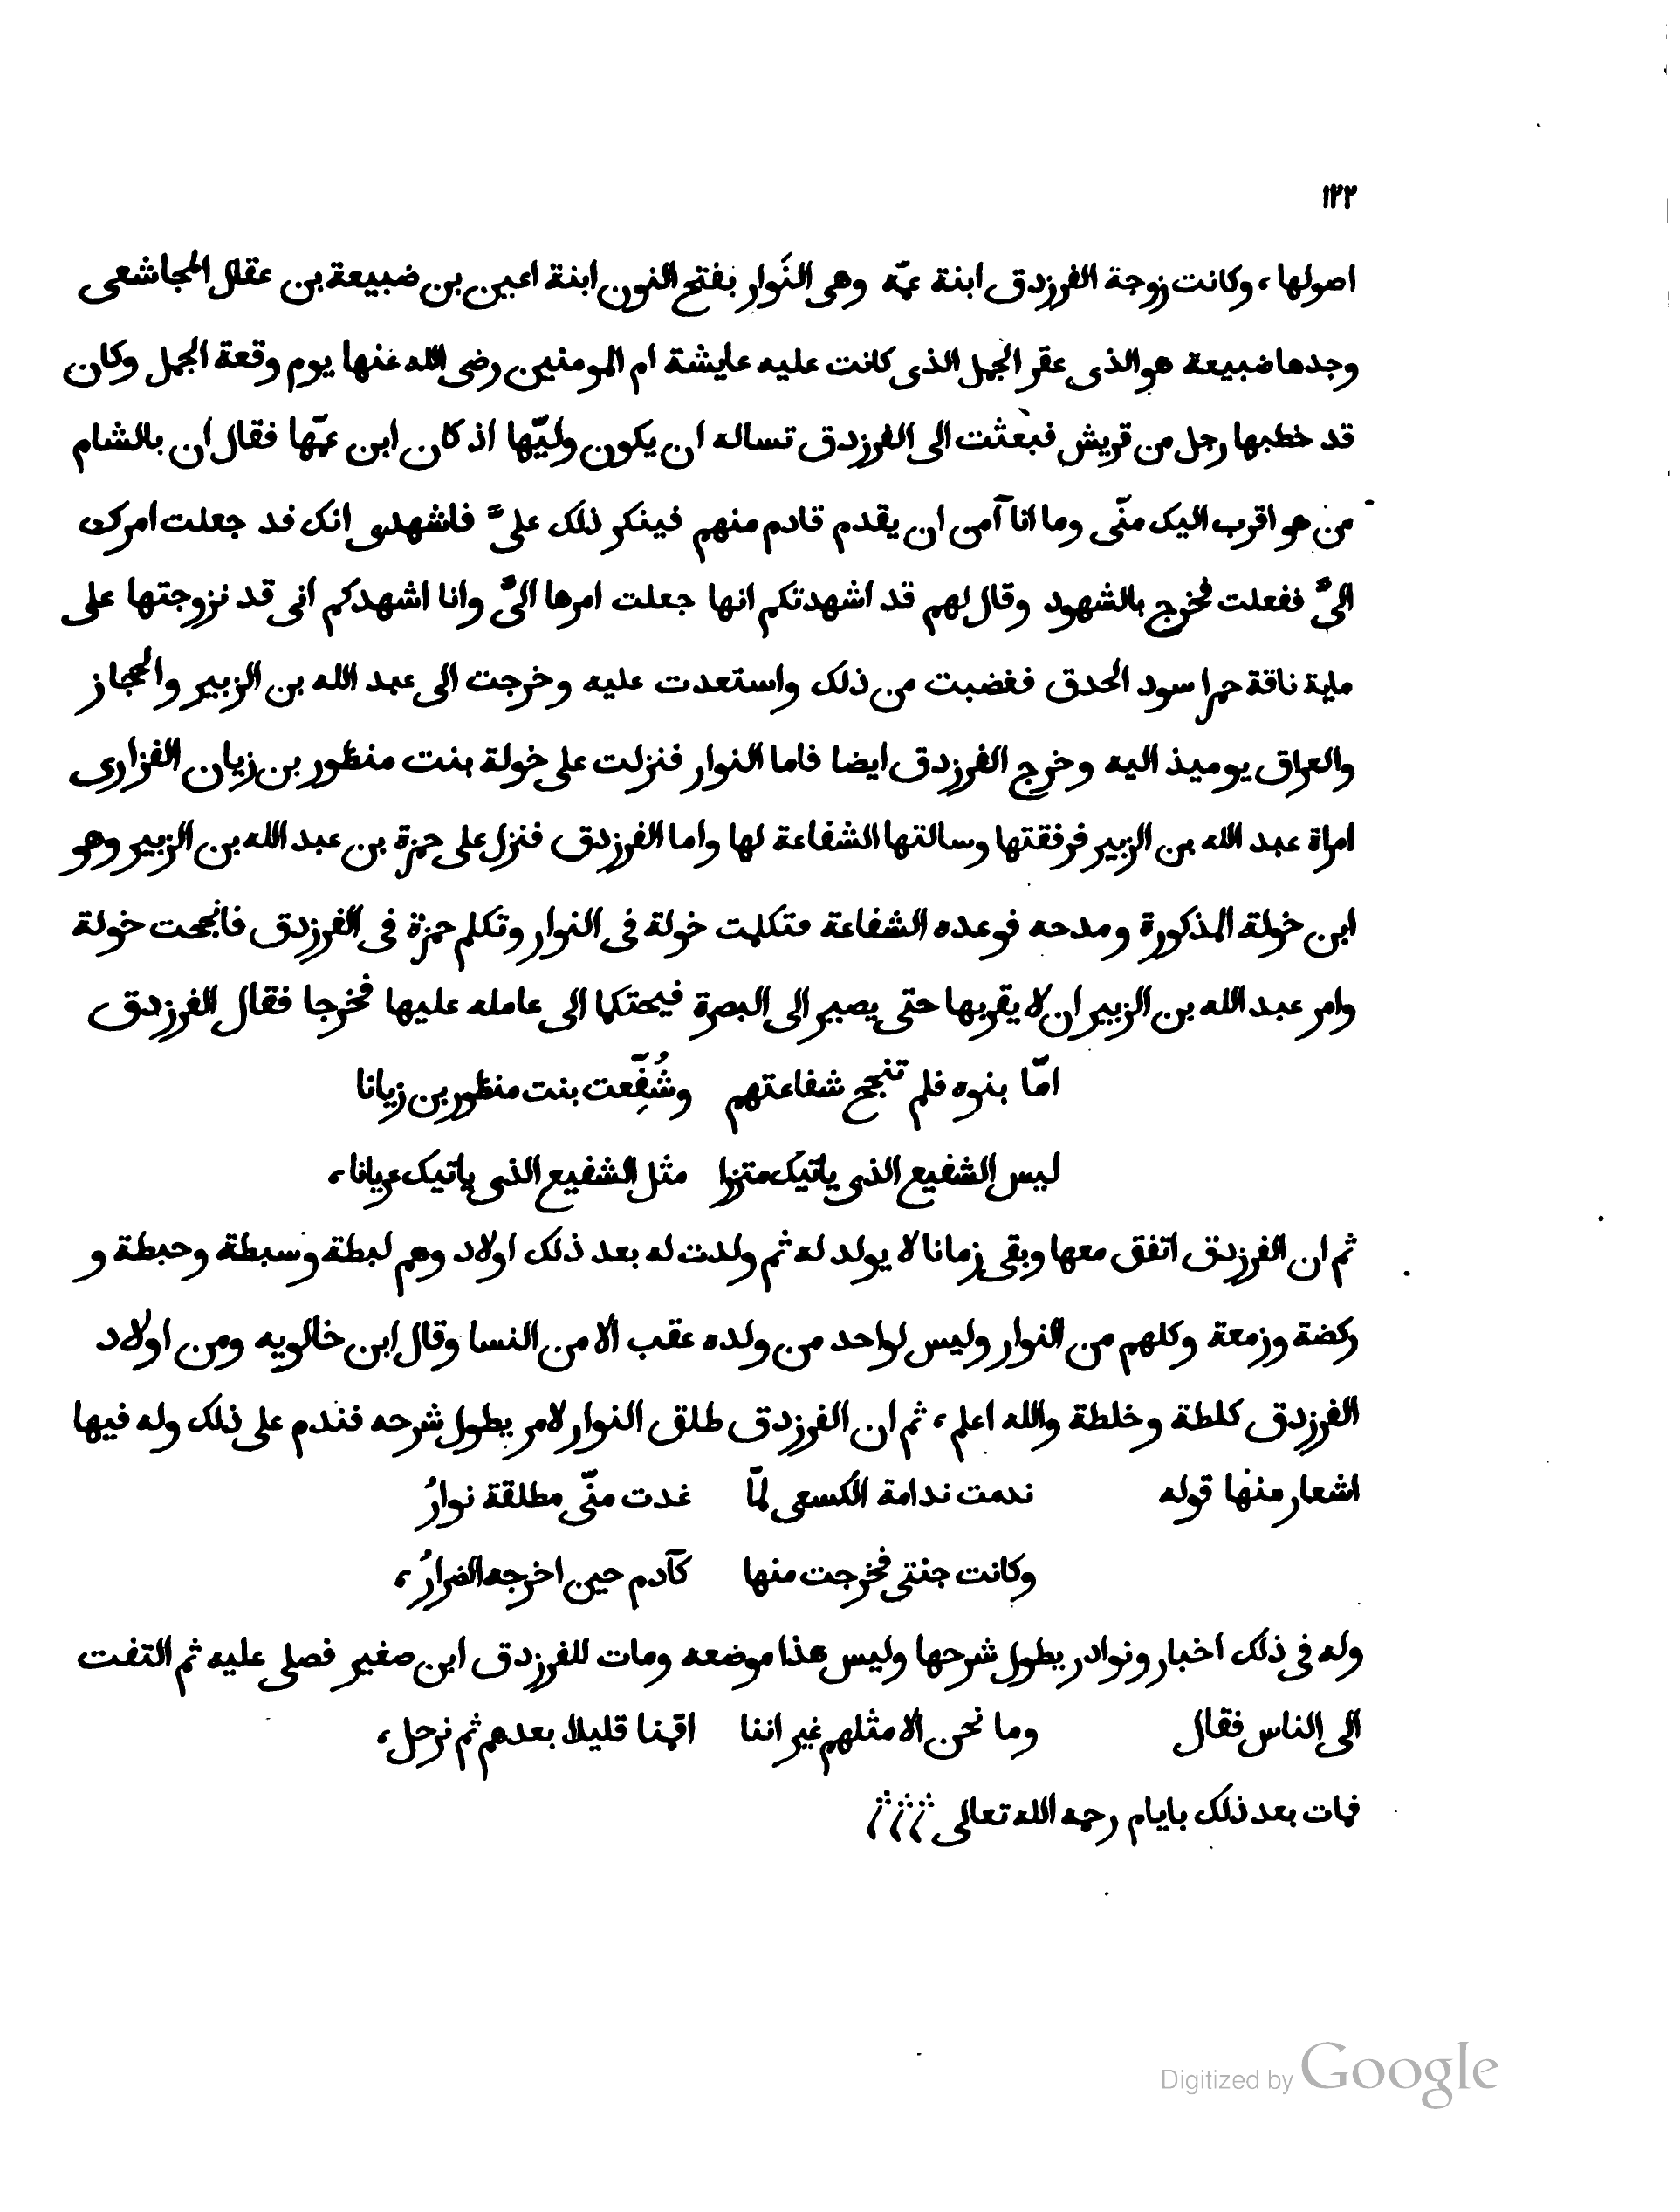 ١٢٢
اصولها، وكانت زوجة الفرزدق ابنة عمّه وهى النَوار بفتح النون ابنة اعين بن ضبيعة بن عقال المجاشعى
وجدها ضبيعة هو الذى عقر الجمل الذى كانت عليه عايشة ام المومنين رضى الله عنها يوم وقعة الجمل وكان
قد خطبها رجل من قريش فبعثت الى الفرزدق تساله ان يكون وليّها اذ كان ابن عمّها فقال ان بالشام
من هو اقرب اليك منّى وما انا آمن ان يقدم قادم منهم فينكر ذلك علىَّ فاشهدى انك قد جعلت امرك
الىَّ ففعلت فخرج بالشهود وقال لهم قد اشهدتكم انها جعلت امرها الىَّ وانا اشهدكم انى قد تزوجتها على
ماية ناقة حمرا سود الحدق فغضبت من ذلك واستعدت عليه وخرجت الى عبد الله بن الزبير والحجاز
والعراق يوميذ اليه وخرج الفرزدق ايضا فاما النوار فنزلت على خولة بنت منظور بن زيان الفزارى
امراة عبد الله بن الزبير فرفقتها وسالتها الشفاعة لها واما الفرزدق فنزل على حمزة بن عبد الله بن الزبير وهو
ابن خولة المذكورة ومدحه فوعده الشفاعة فتكلمت خولة فى النوار وتكلم حمزة فى الفرزدق فانجحت خولة
وامر عبد الله بن الزبير ان لا يقربها حتى يصير الى البصرة فيحتكما الى عامله عليها فخرجا فقال الفرزدق
امّا بنوه فلم تنجح شفاعتهم وشُفِّعت بنت منظور بن زيانا
ليس الشفيع الذى ياتيك متزرا مثل الشفيع الذى ياتيك عريانا،
ثم ان الفرزدق اتفق معها وبقى زمانا لا يولد له ثم ولدت له بعد ذلك اولاد وهم لبطة وسبطة وحبطة و
ركضة وزمعة وكلهم من النوار وليس لواحد من ولده عقب الا من النسا وقال ابن خالويه ومن اولاد
الفرزدق كلطة وخلطة والله اعلم، ثم ان الفرزدق طلق النوار لامر يطول شرحه فندم على ذلك وله فيها
اشعار منها قوله ندمت ندامة الكسعى لمّا غدت منّى مطلقة نوارُ
وكانت جنتى فخرجت منها كآدم حين اخرجه الضرارُ،
وله فى ذلك اخبار ونوادر يطول شرحها وليس هذا موضعه ومات للفرزدق ابن صغير فصلى عليه ثم التفت
الى الناس فقال وما نحن الا مثلهم غير اننا اقمنا قليلا بعدهم ثم نرحل،
فمات بعد ذلك بايام رحمه الله تعالى
Digitized by Google